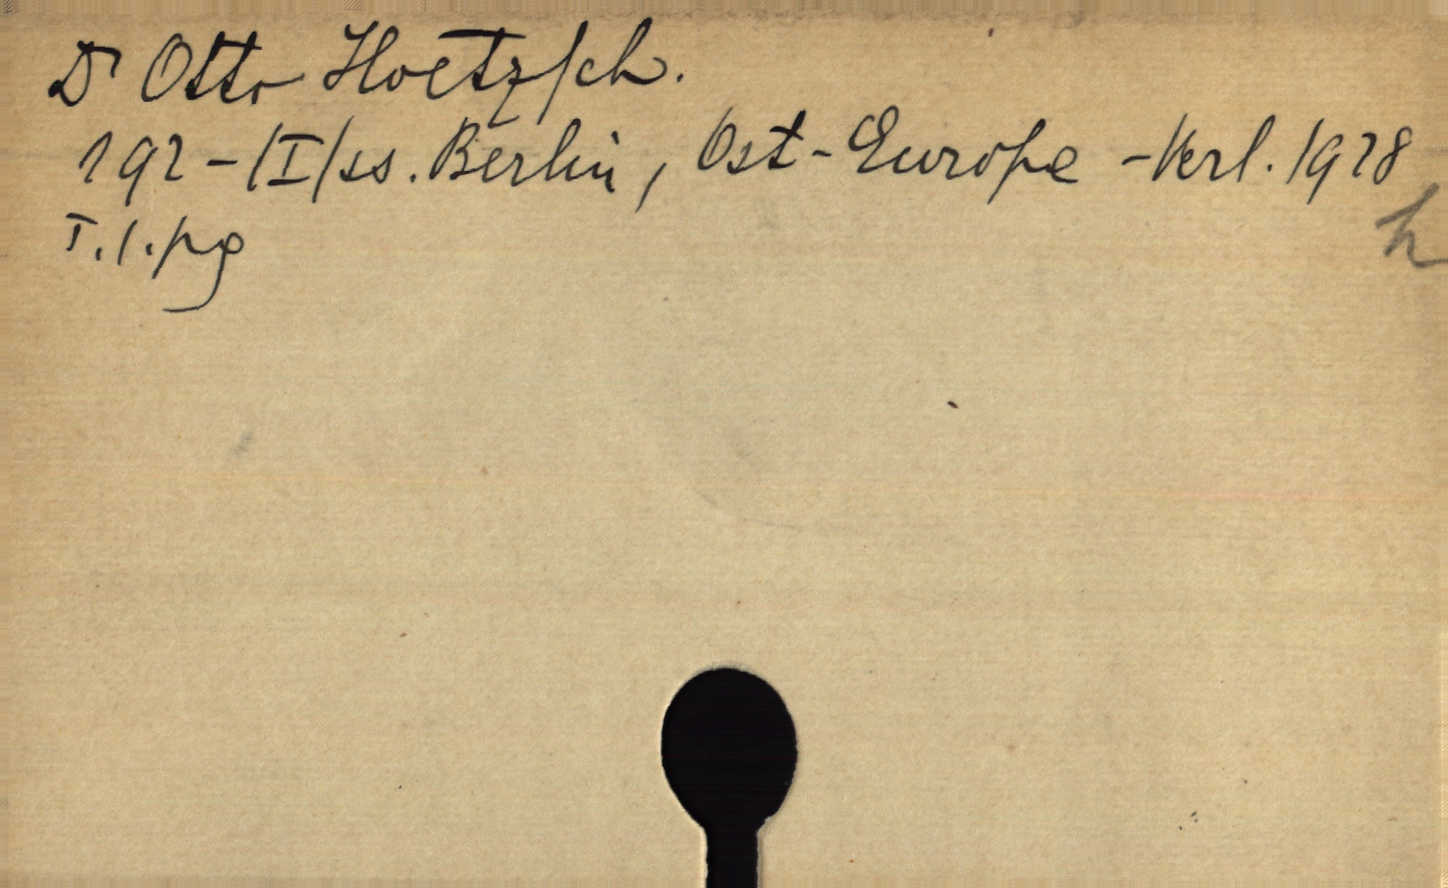 Dr Otto Hoetzsch.
192-/I/ss. Berlin, Ost-Europe -Verl. 1928
T.1.pg
h